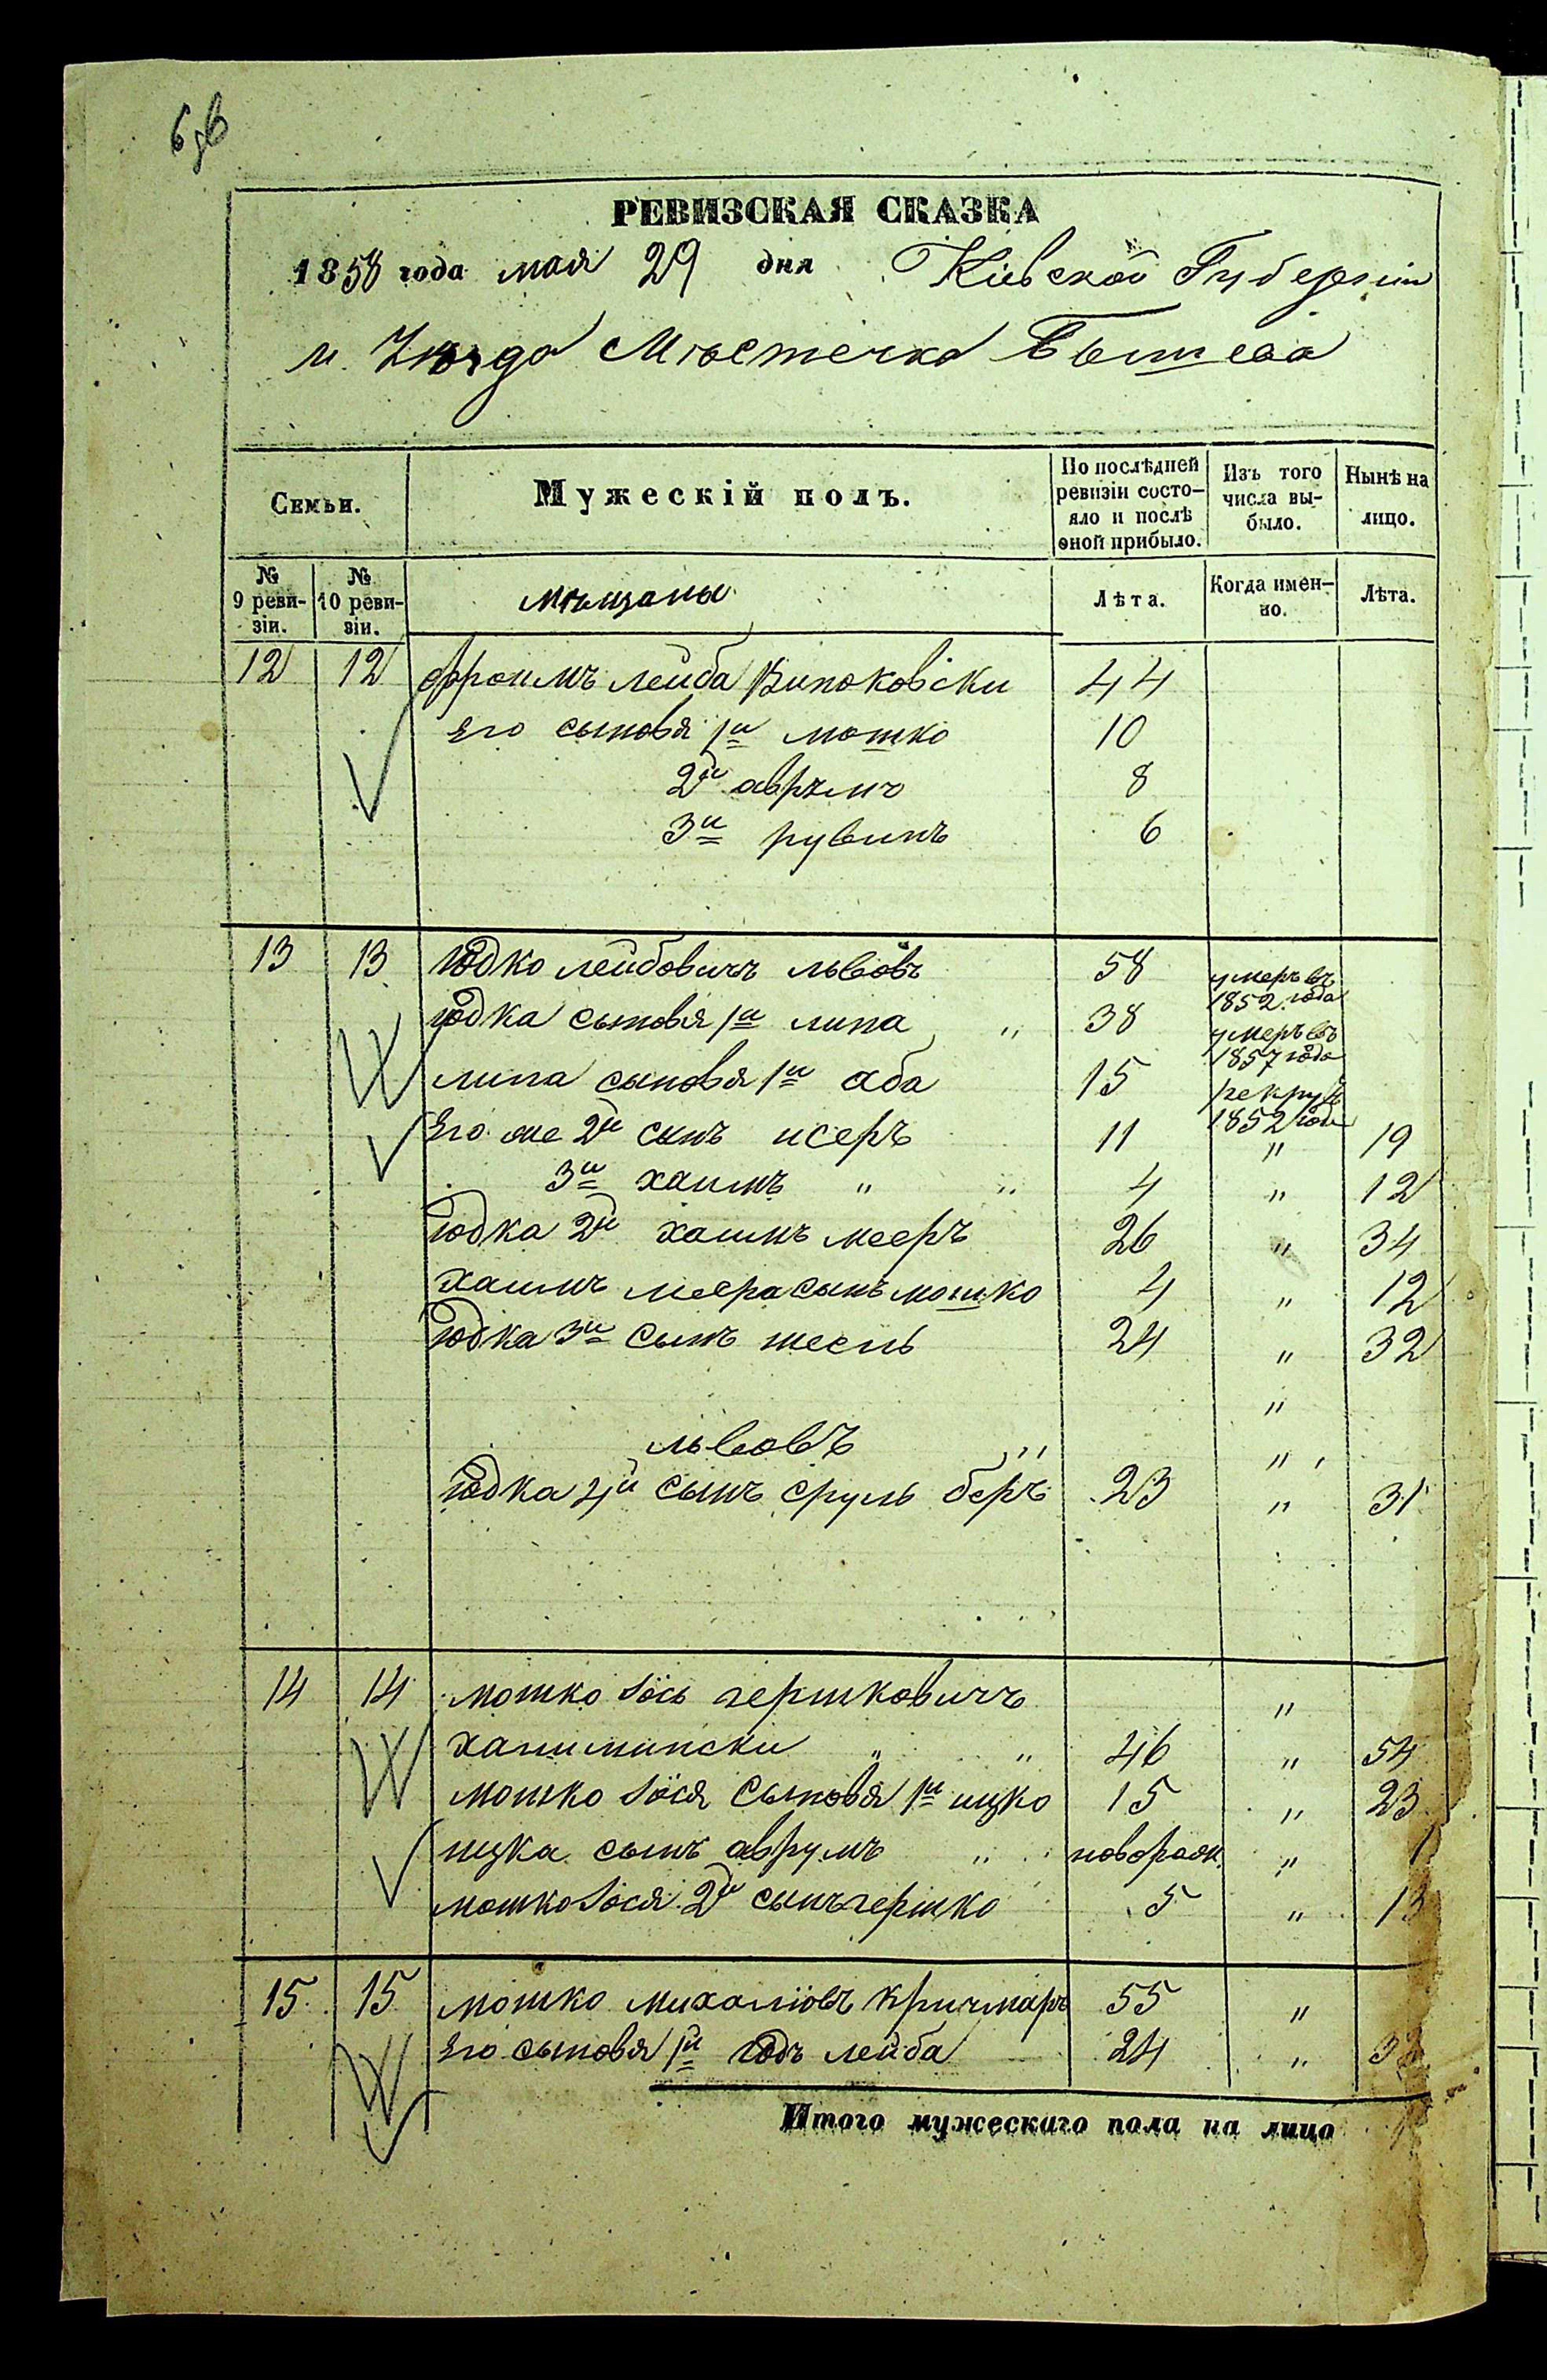 РЕВИЗСКАЯ СКАЗКА
1858 года мая 29 дня Кіевской Губерніи
и Уѣзда Мѣстечка Бышева
Семьи.
Мужескій полъ.
По послѣдней ревизіи состо-
яло и послѣ
оной прибыло.
Изъ того
числа вы-
было.
Нынѣ на
лицо.
№
9 реви-
зіи.
№
10 реви-
зіи.
мѣщаны
Лѣта.
Когда имен-
но.
Лѣта.
12 12 Фроимъ лейба 44
Его сыновя 1й мошко 10
2й аврумъ 8
3й рувинъ 6
13 13 Юдко лейбовичъ львовъ 58 умеръ въ 1852 года
Юдка сыновя 1й липа " 38 умеръ въ 1857 года
липа сыновя 1й аба 15 рекрутъ 1852 года
Его же 2й сынъ исеръ 11 " 19
3й хаимъ " " 4 " 12
Юдка 2й хаимъ мееръ 26 " 34
хаимъ меера сынъ мошко 4 " 12
Юдка 3й сынъ 24 " 32
"
львовъ " "
Юдка 4й сынъ сруль беръ 23 " 31
14 14 мошко Іось гершковичъ "
" " 46 " 54
мошко Іося сыновя 1й ицко 15 " 23
ицка сынъ аврумъ " новорож. "
мошко Іося 2й сынъ гершко 5 " 13
15 15 мошко михалювъ кричмаръ 55 "
Его сыновя 1й лейба 24 " 32
Итого мужескаго пола на лицо